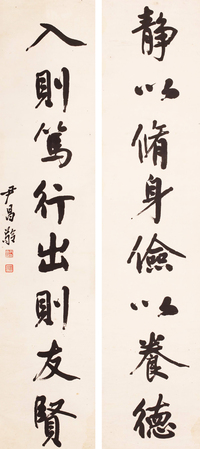 靜以脩身儉以養德
入則篤行出則友賢
尹昌齡